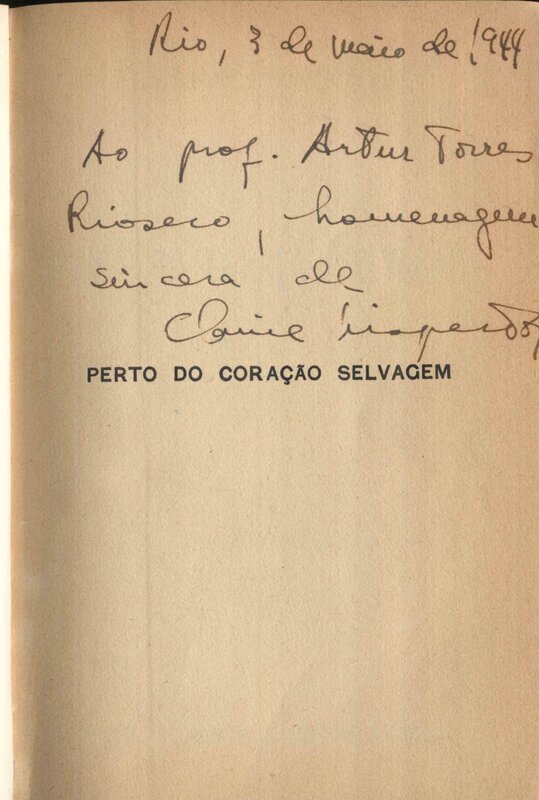 Rio, 3 de maio de 1944
Ao prof. Artur Torres
Rioseco, homenagem
sincera de
Clarice Lispector
PERTO DO CORAÇÃO SELVAGEM